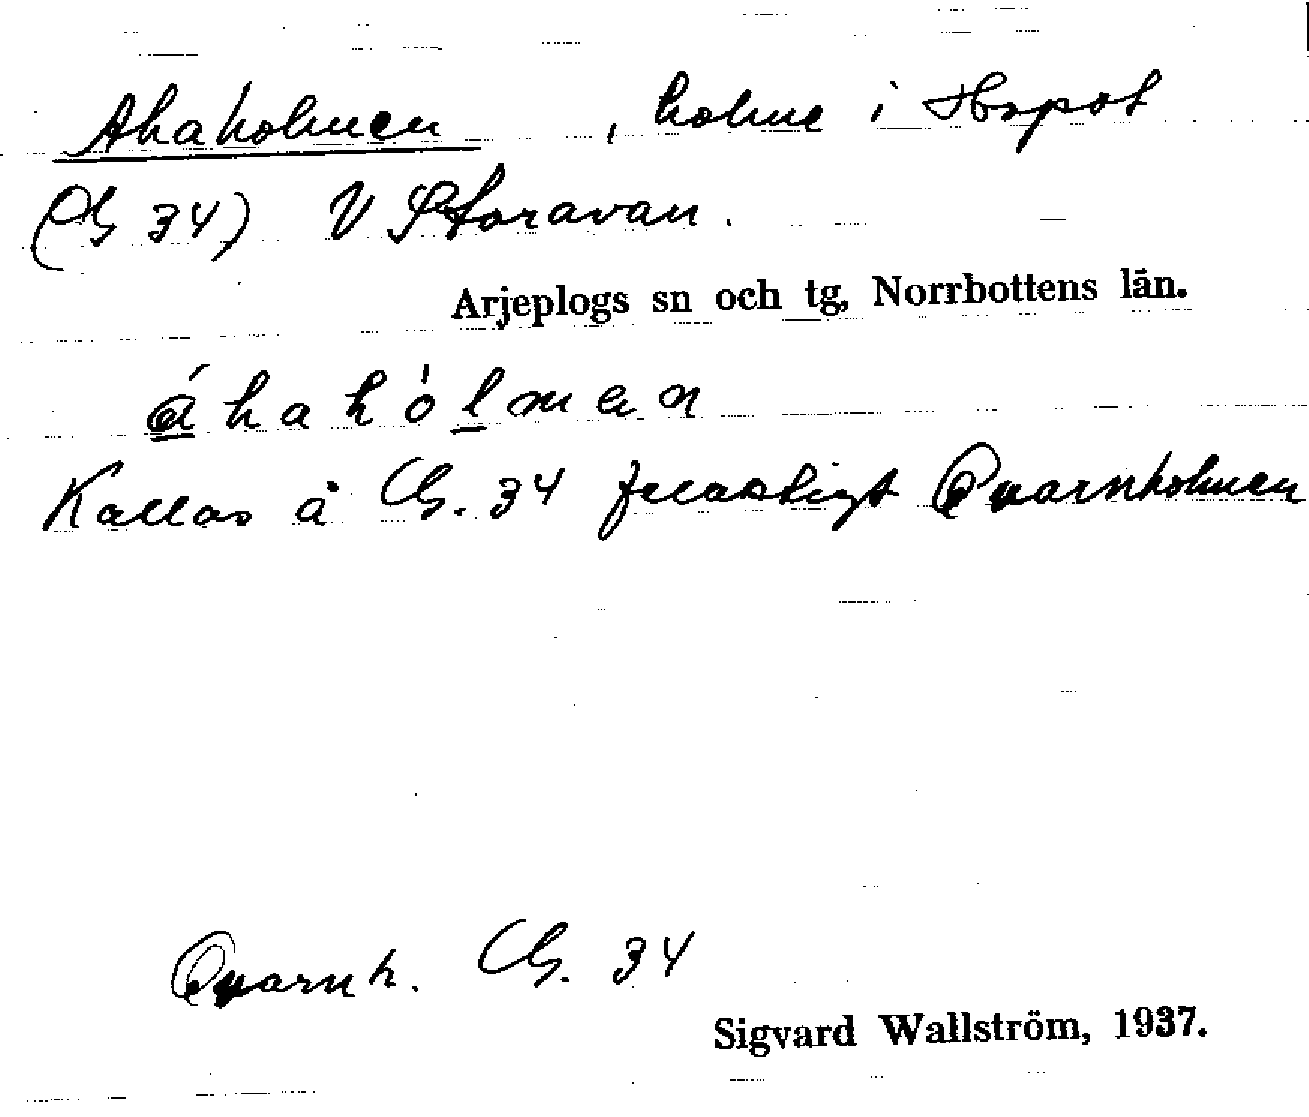 Ahaholmen , holme i
(G 34) V Storavan.
Arjeplogs sn och tg, Norrbottens län.
áhahólmen
Kallas å G. 34 felaktigt Qvarnholmen
Qvarnh. G. 34
Sigvard Wallström, 1937.